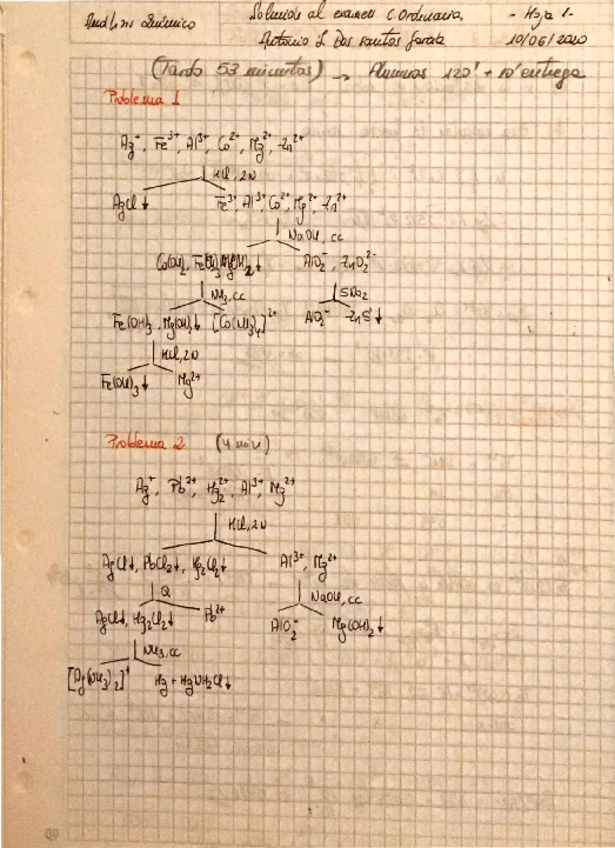 Análisis Químico Solución al examen C. Ordinaria. - Hoja 1 -
Antonio L Dos santos 10/06/2020
(Tardo 53 minutos) → Alumnos 120' + 10' entrega
Problema 1
Ag⁺, Fe³⁺, Al³⁺, Co²⁺, Mg²⁺, Zn²⁺
HCl, 2N
AgCl↓ Fe³⁺, Al³⁺, Co²⁺, Mg²⁺, Zn²⁺
NaOH, cc
Co(OH)₂, Fe(OH)₃, Mg(OH)₂↓ AlO₂⁻, ZnO₂²⁻
NH₃, cc
Fe(OH)₃, Mg(OH)₂↓ [Co(NH₃)₄]²⁺ AlO₂⁻ ZnS↓
HCl, 2N
Fe(OH)₃↓ Mg²⁺
Problema 2 (4 min)
Ag⁺, Pb²⁺, Hg₂²⁺, Al³⁺, Mg²⁺
HCl, 2N
AgCl↓, PbCl₂↓, Hg₂Cl₂↓ Al³⁺, Mg²⁺
Q NaOH, cc
AgCl↓, Hg₂Cl₂↓ Pb²⁺ AlO₂⁻ Mg(OH)₂↓
NH₃, cc
[Ag(NH₃)₂]⁺ Hg + HgNH₂Cl↓